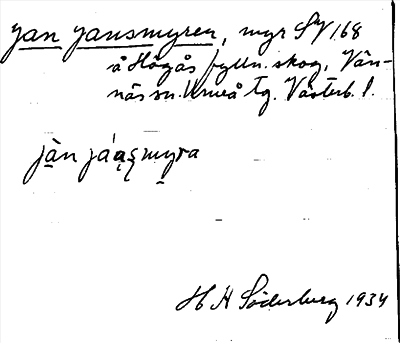 Jan Jansmyren, myr SV 168
å Högås fylln. skog, Vän-
näs sn. Umeå tg. Västerb. l.
jàn já
H H Söderberg 1934